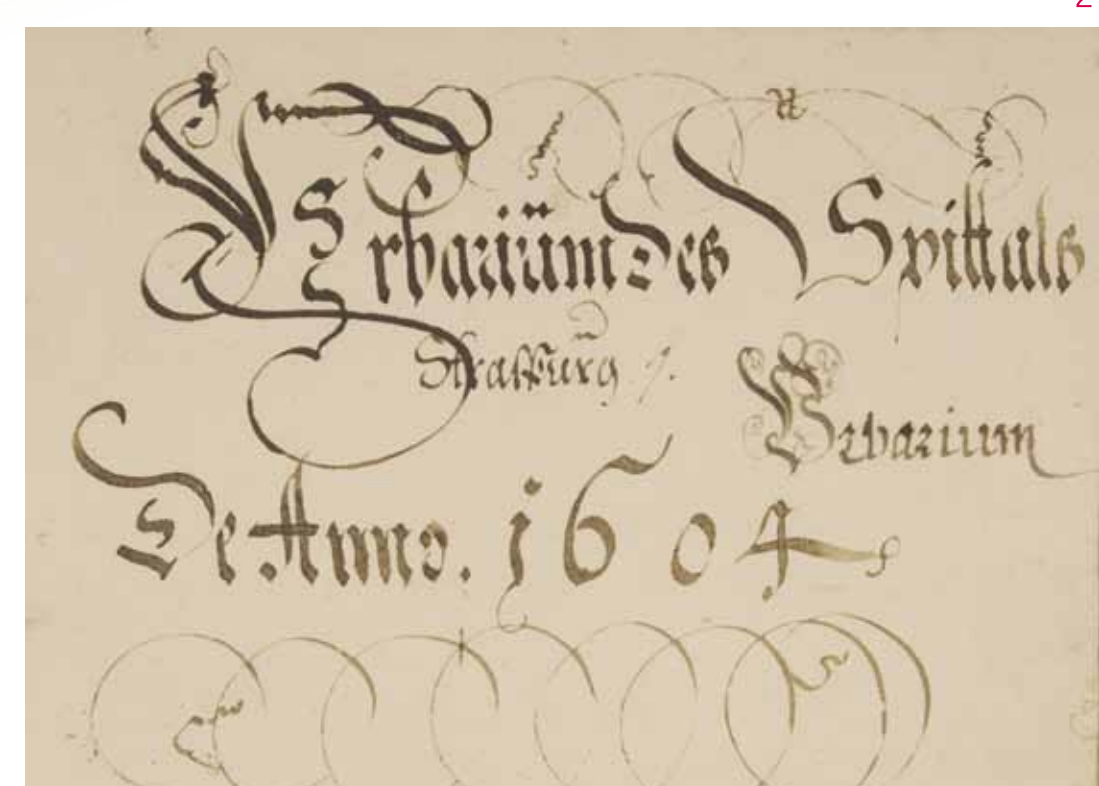 Vrbariüm des Spittals
Straßburg
Vrbarium
De Anno. 1604